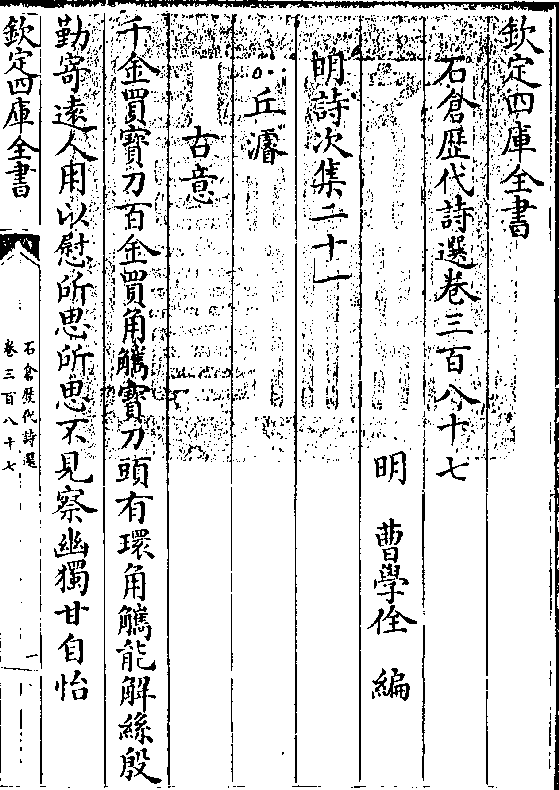 欽定四庫全書
石倉歴代詩選卷三百八十七
明 曹學佺 編
明詩次集二十一
丘濬
古意
千金買寳刀百金買角觿寳刀頭有環角觿能解絲殷
勤寄遠人用以慰所思所思不見察幽獨甘自怡
欽定四庫全書
石倉歴代詩選
卷三百八十七
一